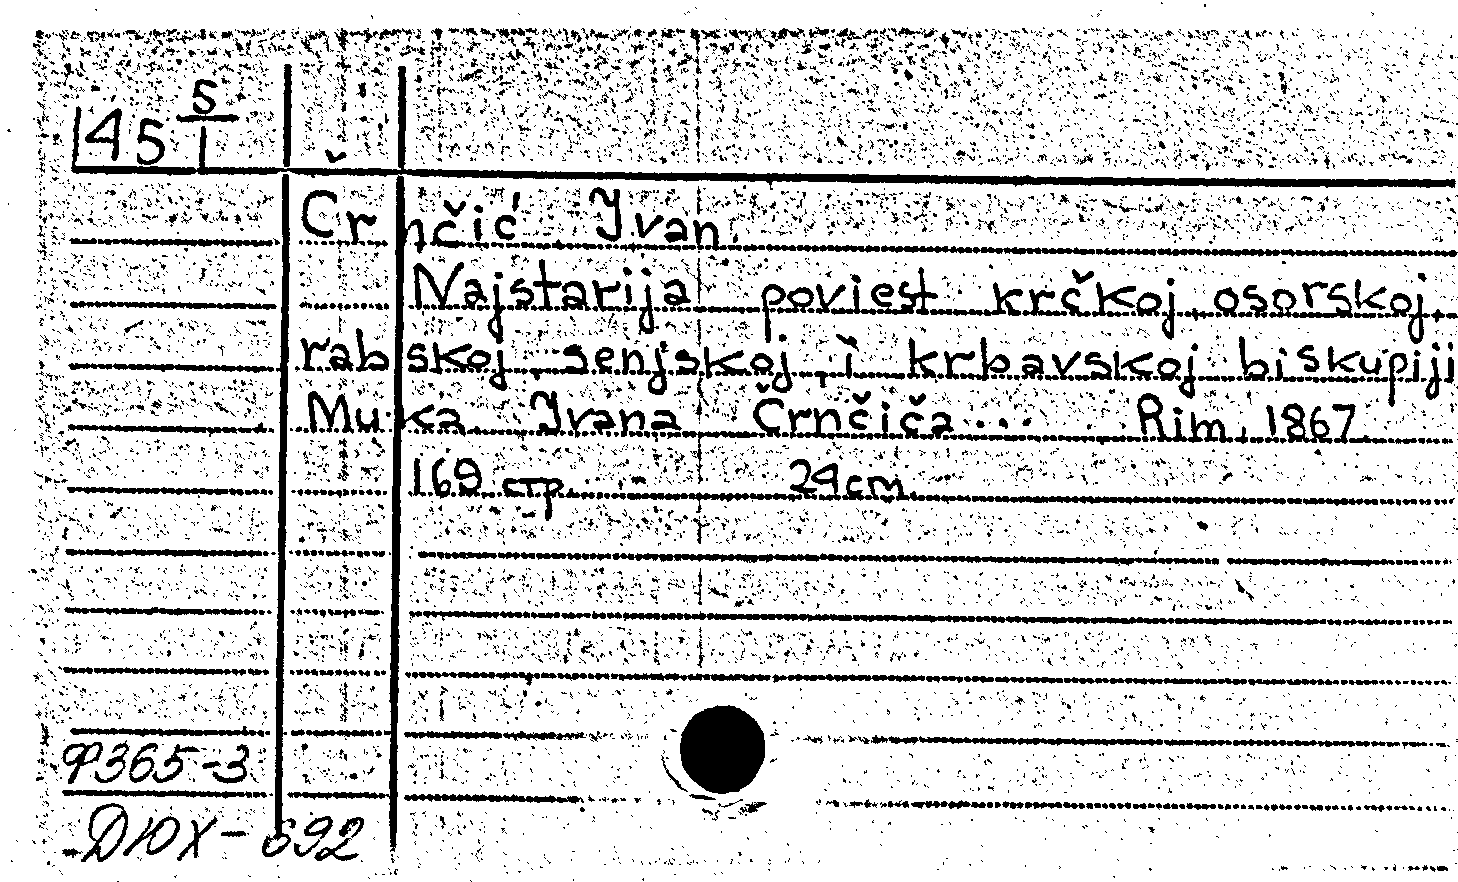 45 5/1
Črnčić Ivan.
Najstarija poviest krčkoj, osorskoj,
rabskoj, senjskoj, i krbavskoj biskupiji
Muka Ivana Črnčiča... Rim, 1867.
169 стр. 24 cm.
Ф365-3
ДЮХ-692